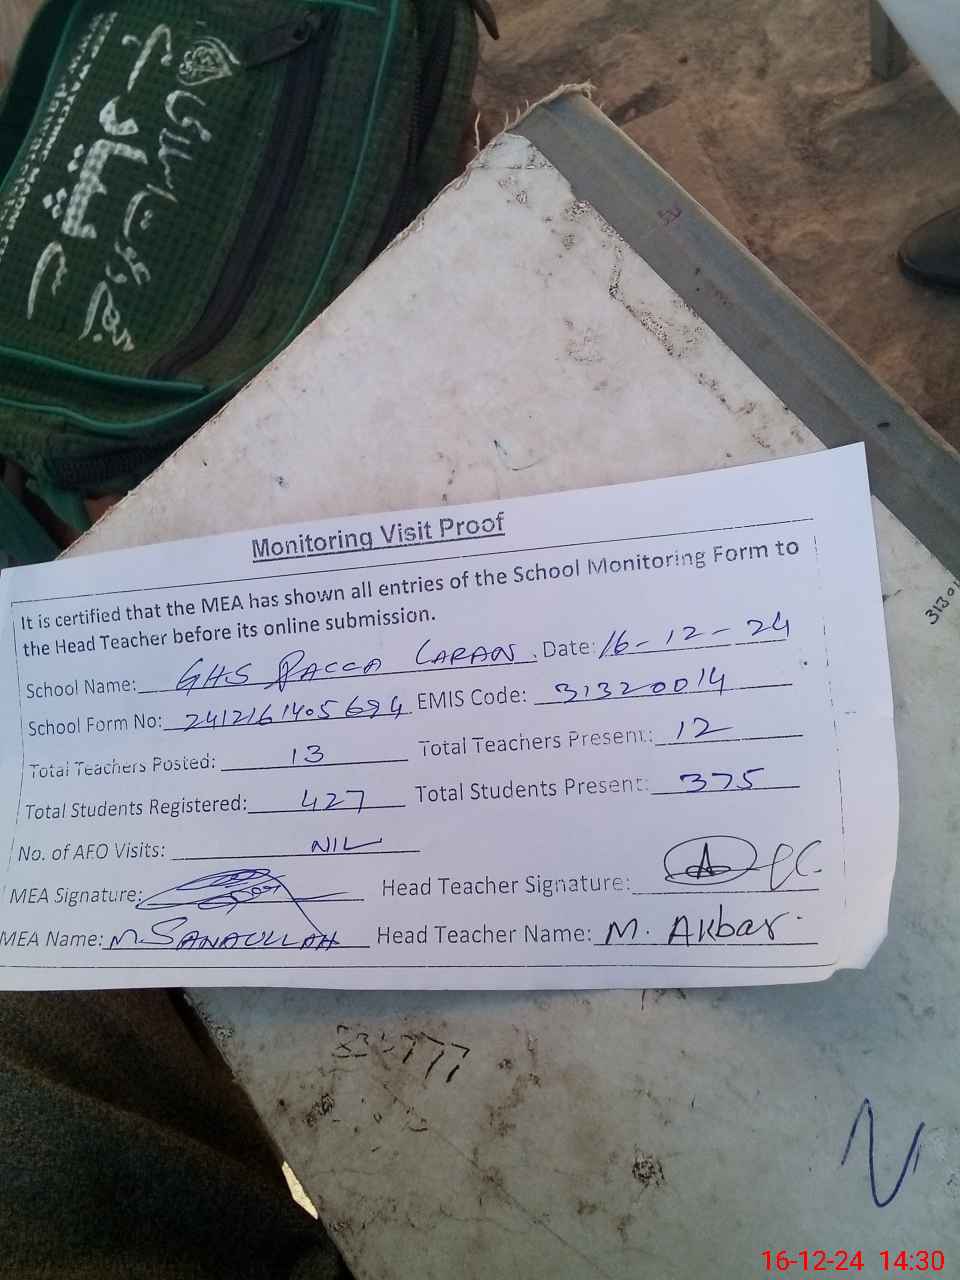 Monitoring Visit Proof
It is certified that the MEA has shown all entries of the School Monitoring Form to
the Head Teacher before its online submission.
School Name: GHS PACCA LARAN. Date: 16-12-24
School Form No: 2412161405694 EMIS Code: 31320014
Total Teachers Posted: 13 Total Teachers Present: 12
Total Students Registered: 427 Total Students Present: 375
No. of AEO Visits: NIL
MEA Signature: Head Teacher Signature:
MEA Name: M. SANAULLAH Head Teacher Name: M. Akbar.
16-12-24 14:30